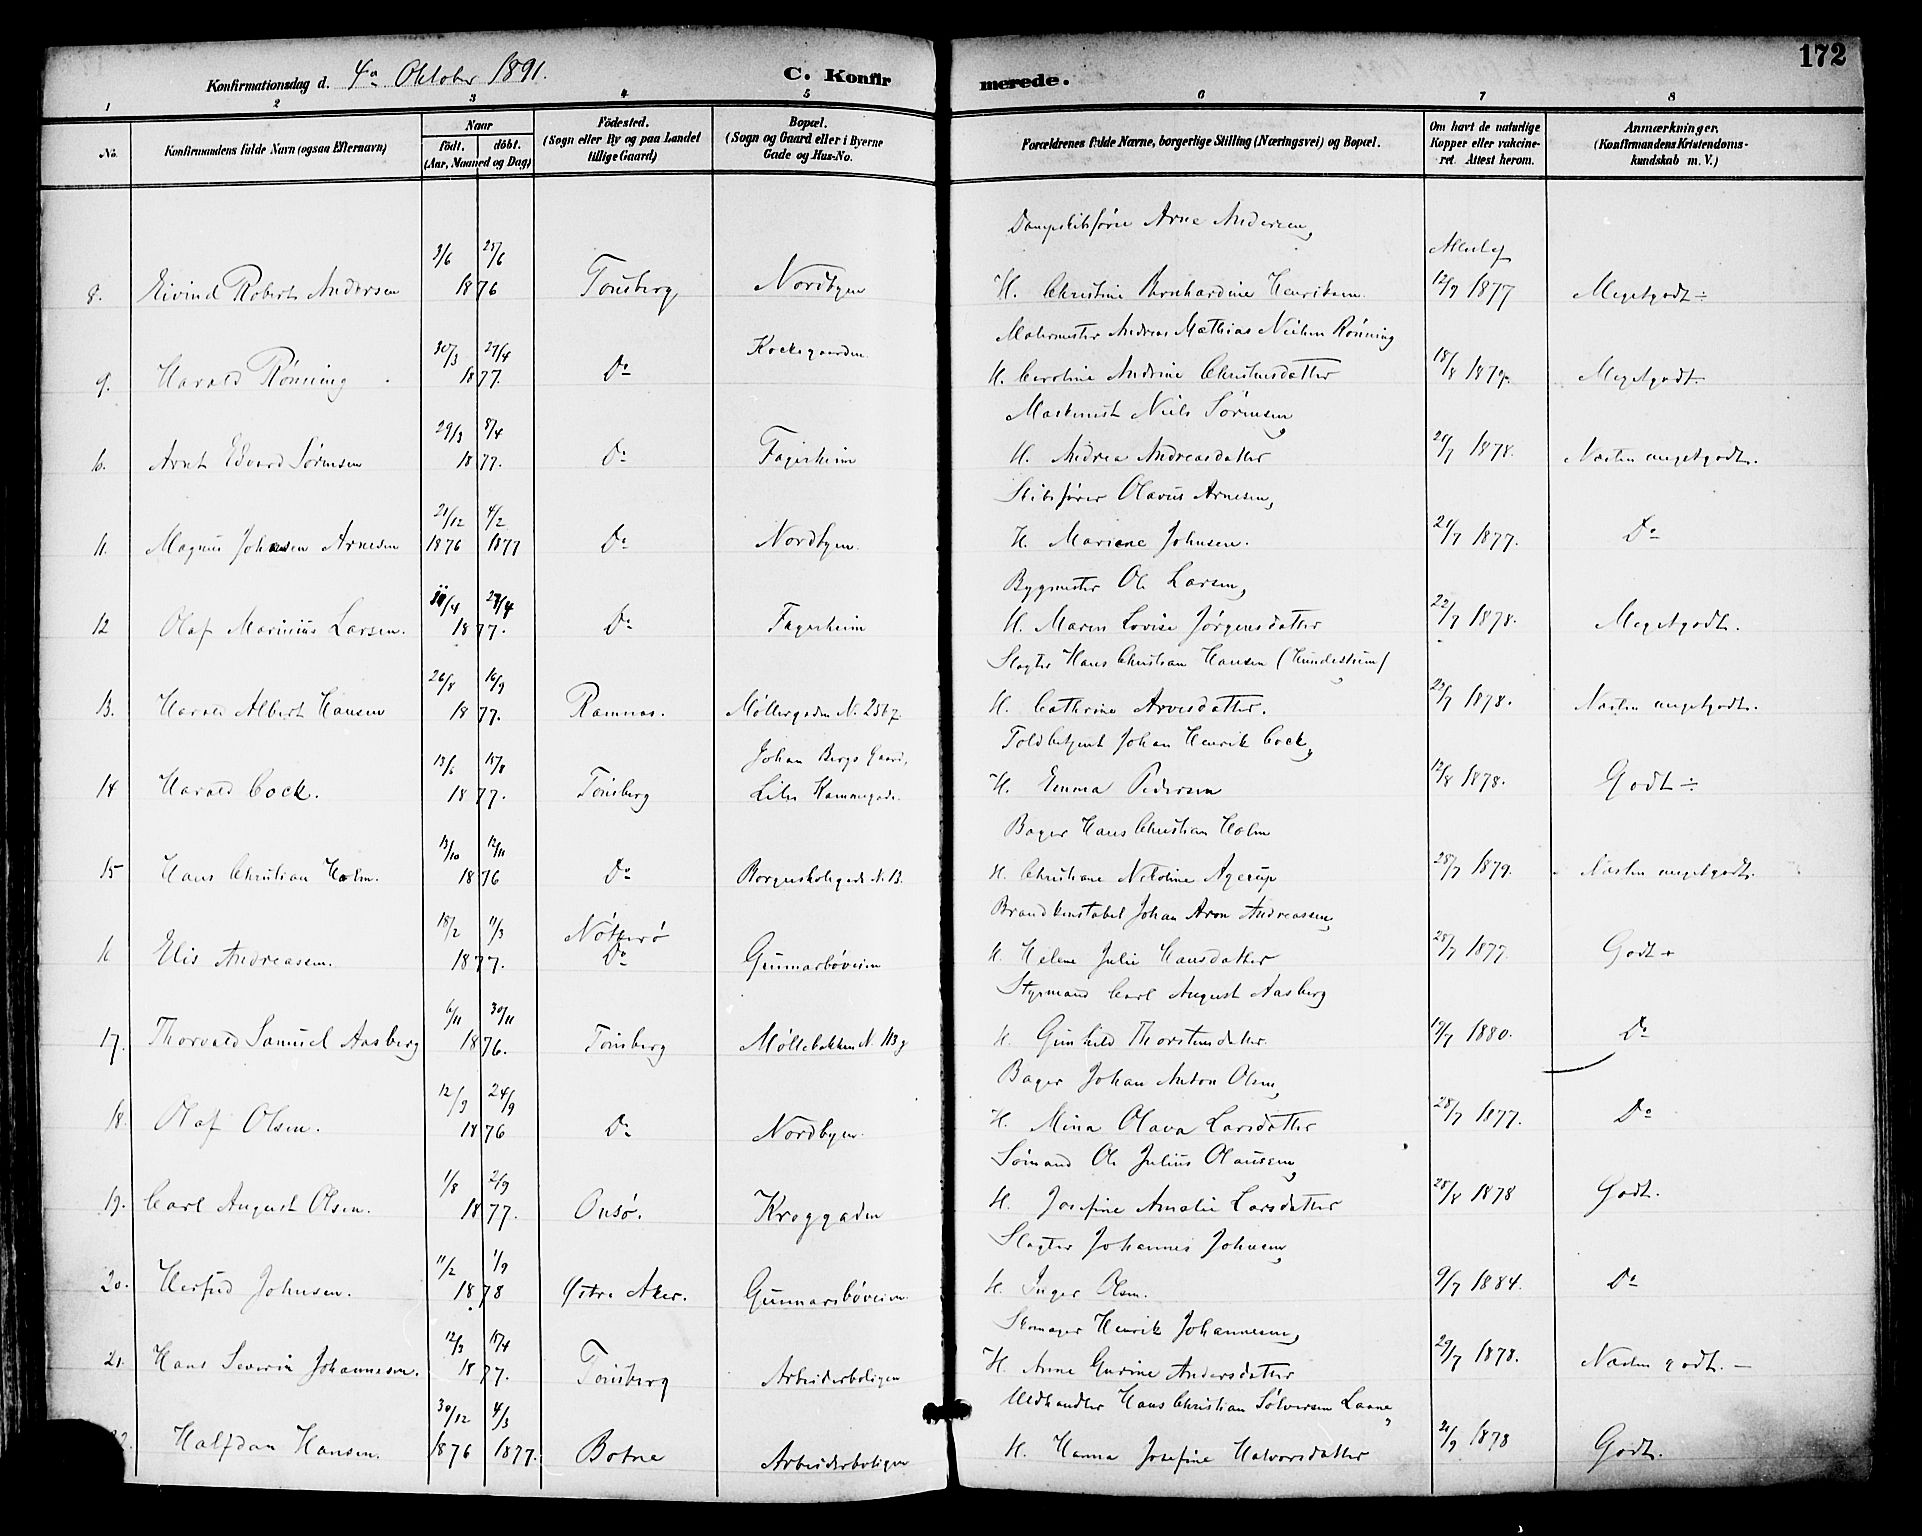 172
Konfirmationsdag d. 4de Oktober 1891. C. Konfirmerede.
1 2 3 4 5 6 7 8
No. Konfirmandens fulde Navn (ogsaa Efternavn) Naar født. døbt. (Aar, Maaned og Dag) Fødested. (Sogn eller By og paa Landet tillige Gaard) Bopæl. (Sogn og Gaard eller i Byerne Gade og Hus-No. Forældrenes fulde Navne, borgerlige Stilling (Næringsvei) og Bopæl. Om havt de naturlige Kopper eller vakcineret. Attest herom. Anmærkninger. (Konfirmandens Kristendomskundskab m. V.)
Dampskibsfører Arne Andersen,
8. Eivind Robert Andersen 3/6 1876 Tønsberg Nordbyen H. Christine Bernhardine Henriksen. 12/9 1877 Megetgodt ÷
Malermester Andreas Mathias Rønning
9. Harald Rønning 30/3 27/4 1877. Do Kocksgaarden. H. Caroline Andrine 18/8 1879. Megetgodt.
Maskinist Niels Sørensen,
Arnt Edvard Sørensen 29/3 8/4 1877. Do Fagerheim H. Andrea Andreasdatter 1878. Næsten megetgodt.
Skibsfører Olavus Arnesen,
11. Magnus Johansen Arnesen 21/12 1876 4/2 1877 Do Nordbyen. H. Mariane Johnsen. 21/7 1877. Do
Bygmester Ole Larsen,
12 Olaf Marinius Larsen. 1877. Do Fagerheim H. Maren Lovise Jørgensdatter 1878. Megetgodt.
Slagter Hans Christian Hansen
13. Harald Albert Hansen 26/8 16/9 1877. Ramnæs. Møllergaden N. 256 H. Cathrine Arvesdatter. 1878. Næsten megetgodt.
Toldbetjent Johan Henrik Cock,
14 Harald Cock. 1877. Tønsberg Johan Bergs Gaard, Lille H. Emma Pedersen 12/8 1878. Godt ÷
Bager Hans Christian Holm
15 Hans Christian Holm. 13/10 12/11 1876 Do N. 13. H. Christiane Nikoline Agerup 28/7 1879. Næsten megetgodt.
Brandkonstabel Johan Aron Andreassen,
Elis Andreassen. 18/2 11/3 1877. Nøtterø Do Gunnarsbøveien H. Helene Julie Hansdatter 28/7 1877. Godt +
Styrmand Carl August Aasberg
17. Thorvald Samuel Aasberg 6/11 30/11 1876. Tønsberg Møllebakken N. 113 H. Gunhild Thorstensdatter. 19/7 1880. Do
Bager Johan Anton Olsen,
18. Olaf Olsen. 12/9 24/9 1876 Do Nordbyen. H. Mina Olava Larsdatter 28/7 1877. Do
Sømand Ole Julius Olaussen,
19. Carl August Olsen. 1/8 2/9 1877. Onsø. Kroggaden H. Josefine Amalie Larsdatter 28/8 1878 Godt.
Slagter Johannes Johnsen,
20. Johnsen. 11/2 1/9 1878 Østre Aker. Gunnarsbøveien. H. Inger Olsen. 9/7 1884. Do
Skomager Henrik Johannesen,
21. Hans Severin Johannesen. 12/3 15/4 1877. Tønsberg Arbeiderboligen H. Anne Gurine Andersdatter 29/7 1878. Næsten godt. —
Vedhandler Hans Christian Laane,
Halfdan Hansen. 30/12 1876 4/3 1877. Botne Arbeiderboligen H. Hanna Josefine Halvorsdatter 21/9 1878 Godt.